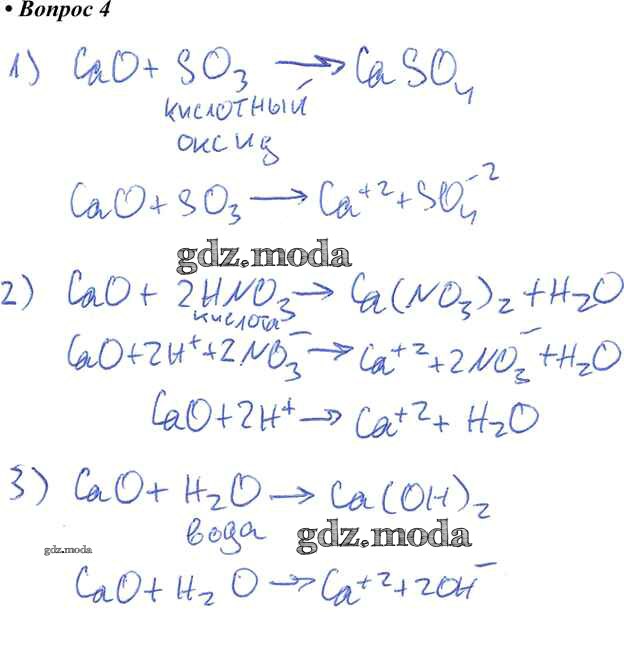 • Вопрос 4
1) CaO + SO₃ → CaSO₄
кислотный
оксид
CaO + SO₃ → Ca⁺² + SO₄⁻²
gdz.moda
2) CaO + 2HNO₃ → Ca(NO₃)₂ + H₂O
кислота
CaO + 2H⁺ + 2NO₃⁻ → Ca⁺² + 2NO₃⁻ + H₂O
CaO + 2H⁺ → Ca⁺² + H₂O
3) CaO + H₂O → Ca(OH)₂
вода
gdz.moda
gdz.moda
CaO + H₂O → Ca⁺² + 2OH⁻